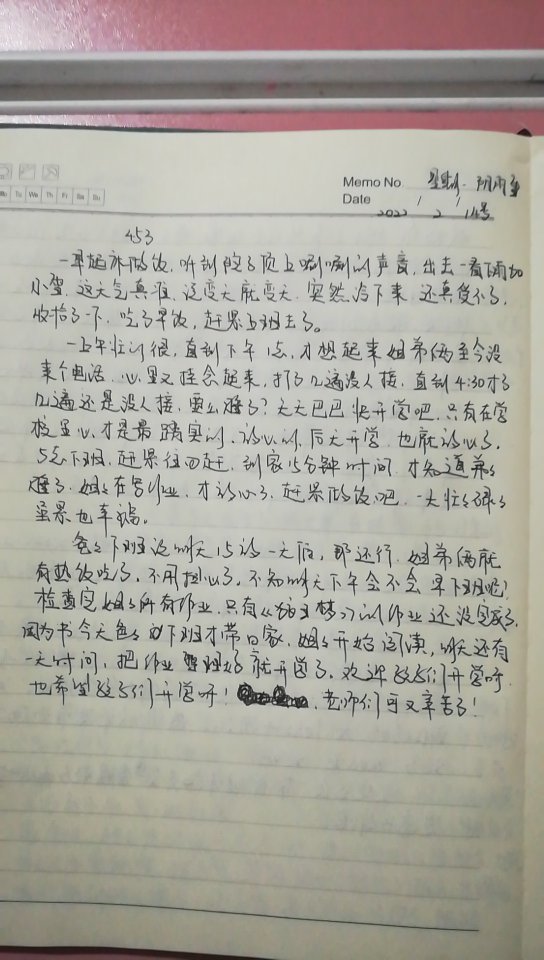 Mo Tu We Th Fr Sa Su
Memo No. 星期一 阴雨雪
Date 2022 / 2 / 14号
453
一早起床做饭，听到院子顶上唰唰的声音，出去一看下雨加
小雪，这天气真准，说变天就变天，突然冷下来，还真受不了，
收拾了一下，吃了早饭，赶紧上班去了。
一上午忙的很，直到下午1点，才想起来姐弟俩至今没
来个电话，心里又挂念起来，打了几遍没人接，直到4:30打了
几遍还是没人接，要么睡了？天天巴巴快开学吧，只有在学
校里心才是最踏实的、放心的，后天开学，也就放心了。
5点下班，赶紧往回赶，到家15分钟时间，才知道弟弟
睡了，姐姐在写作业，才放心了，赶紧做饭吧，一天忙忙碌碌
虽累也幸福。
爸爸下班说明天15放一天假，那还行，姐弟俩就
有热饭吃了，不用担心了，不知明天下午会不会早下班呢！
检查完姐姐所有作业，只有《》的作业还没完成，
因为书今天爸爸下班才带回家，姐姐开始阅读，明天还有
一天时间，把作业整理好就开学了，欢迎孩子们开学呀，
也希望孩子们开学呀！老师们可又辛苦了！